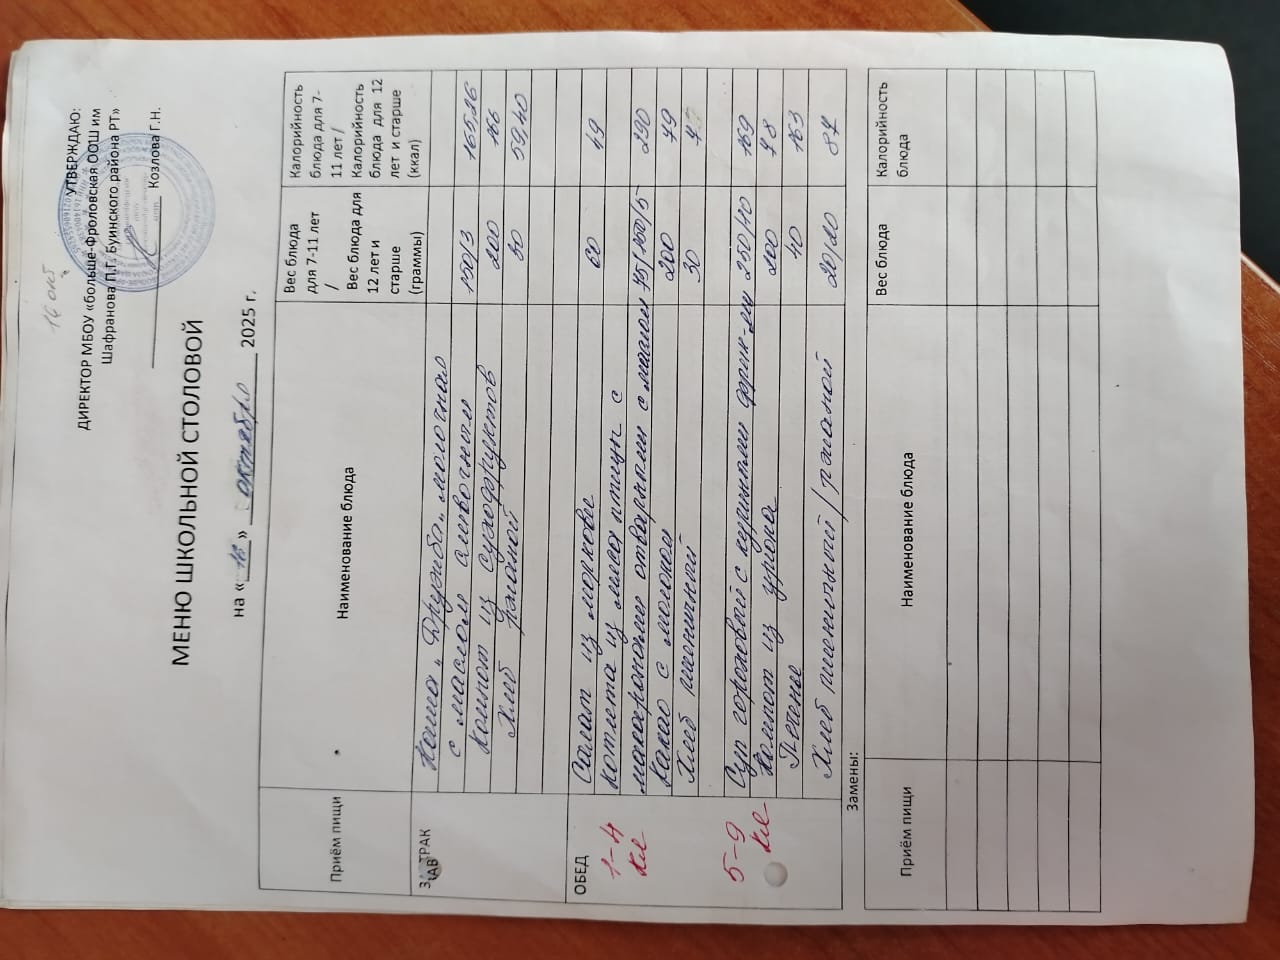 16 окт
УТВЕРЖДАЮ:
ДИРЕКТОР МБОУ «больше-Фроловская ООШ им
Шафранова П.Г. Буинского района РТ»
Козлова Г.Н.
МЕНЮ ШКОЛЬНОЙ СТОЛОВОЙ
на «16» октября 2025 г.
Приём пищи Наименование блюда Вес блюда для 7-11 лет / Вес блюда для 12 лет и старше (граммы) Калорийность блюда для 7-11 лет / Калорийность блюда для 12 лет и старше (ккал)
ЗАВТРАК Каша „Дружба" молочная
с маслом сливочным 150/3 165,26
Компот из сухофруктов 200 166
Хлеб ржаной 30 59,40
ОБЕД Салат из моркови 60 49
1-4 кл Котлета из мяса птицы с
макаронами отварными с маслом 75/150/5 290
Какао с молоком 200 79
Хлеб пшеничный 30
5-9 Суп гороховый с куриным 250/40 169
кл Компот из урюка 200 78
Печенье 40 163
Хлеб пшеничный/ржаной 20/20 87
Замены:
Приём пищи Наименование блюда Вес блюда Калорийность блюда